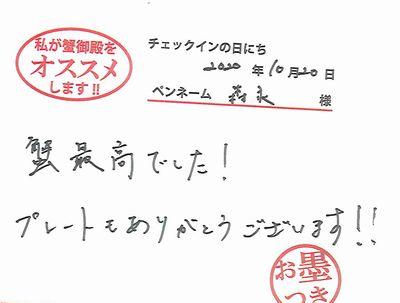 私が蟹御殿を
オススメ
します!!
チェックインの日にち
2020 年 10 月 20 日
ペンネーム 森永 様
蟹最高でした!
プレートもありがとうございます!!
お墨
つき